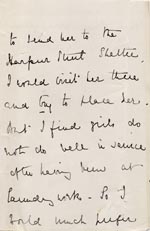 to send her to the
Harpur Street Shelter,
I would visit her there
and try to place her.
But I find girls do
not do well in service
after having been at
Laundry works. So I
would much prefer